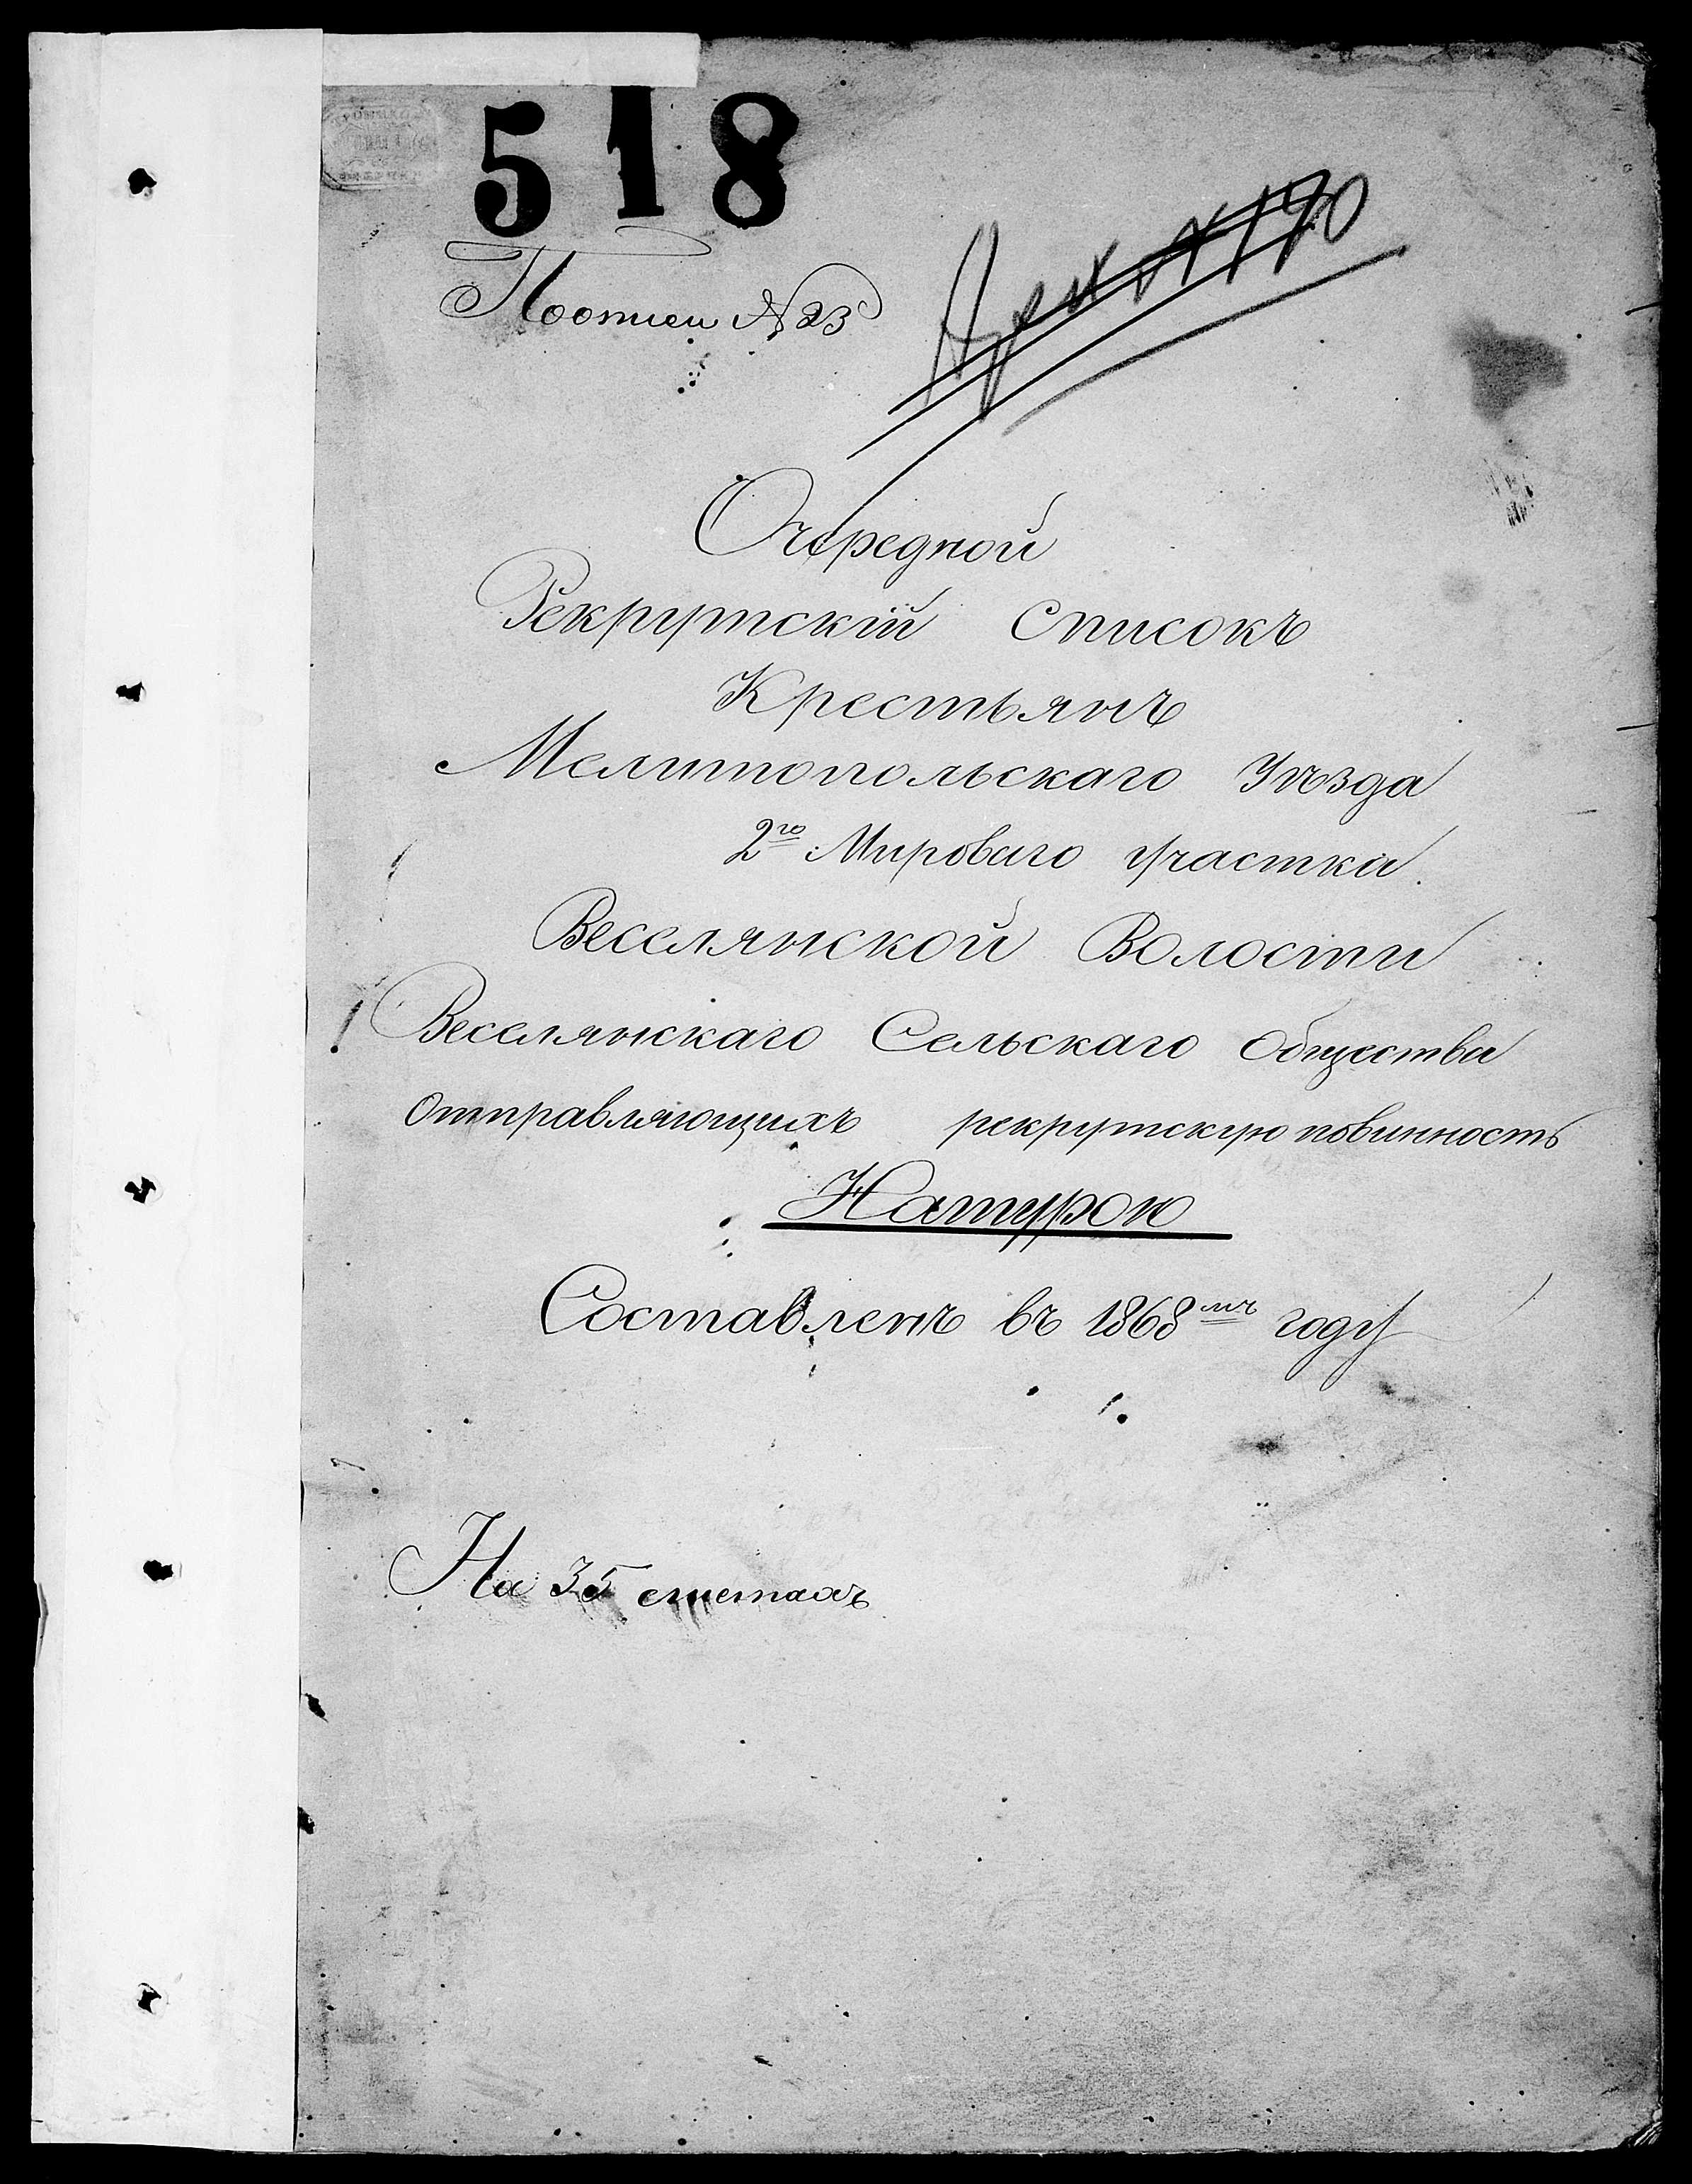 518
По описи №23
Очередной
Рекрутскій списокъ
Крестьянъ
Мелитопольскаго Уѣзда
2го Мироваго участка.
Веселянской Волости
Веселянскаго Сельскаго Общества
Отправляющихъ рекрутскую повинность
Натурою
Составленъ въ 1868мъ году
На 35 листахъ